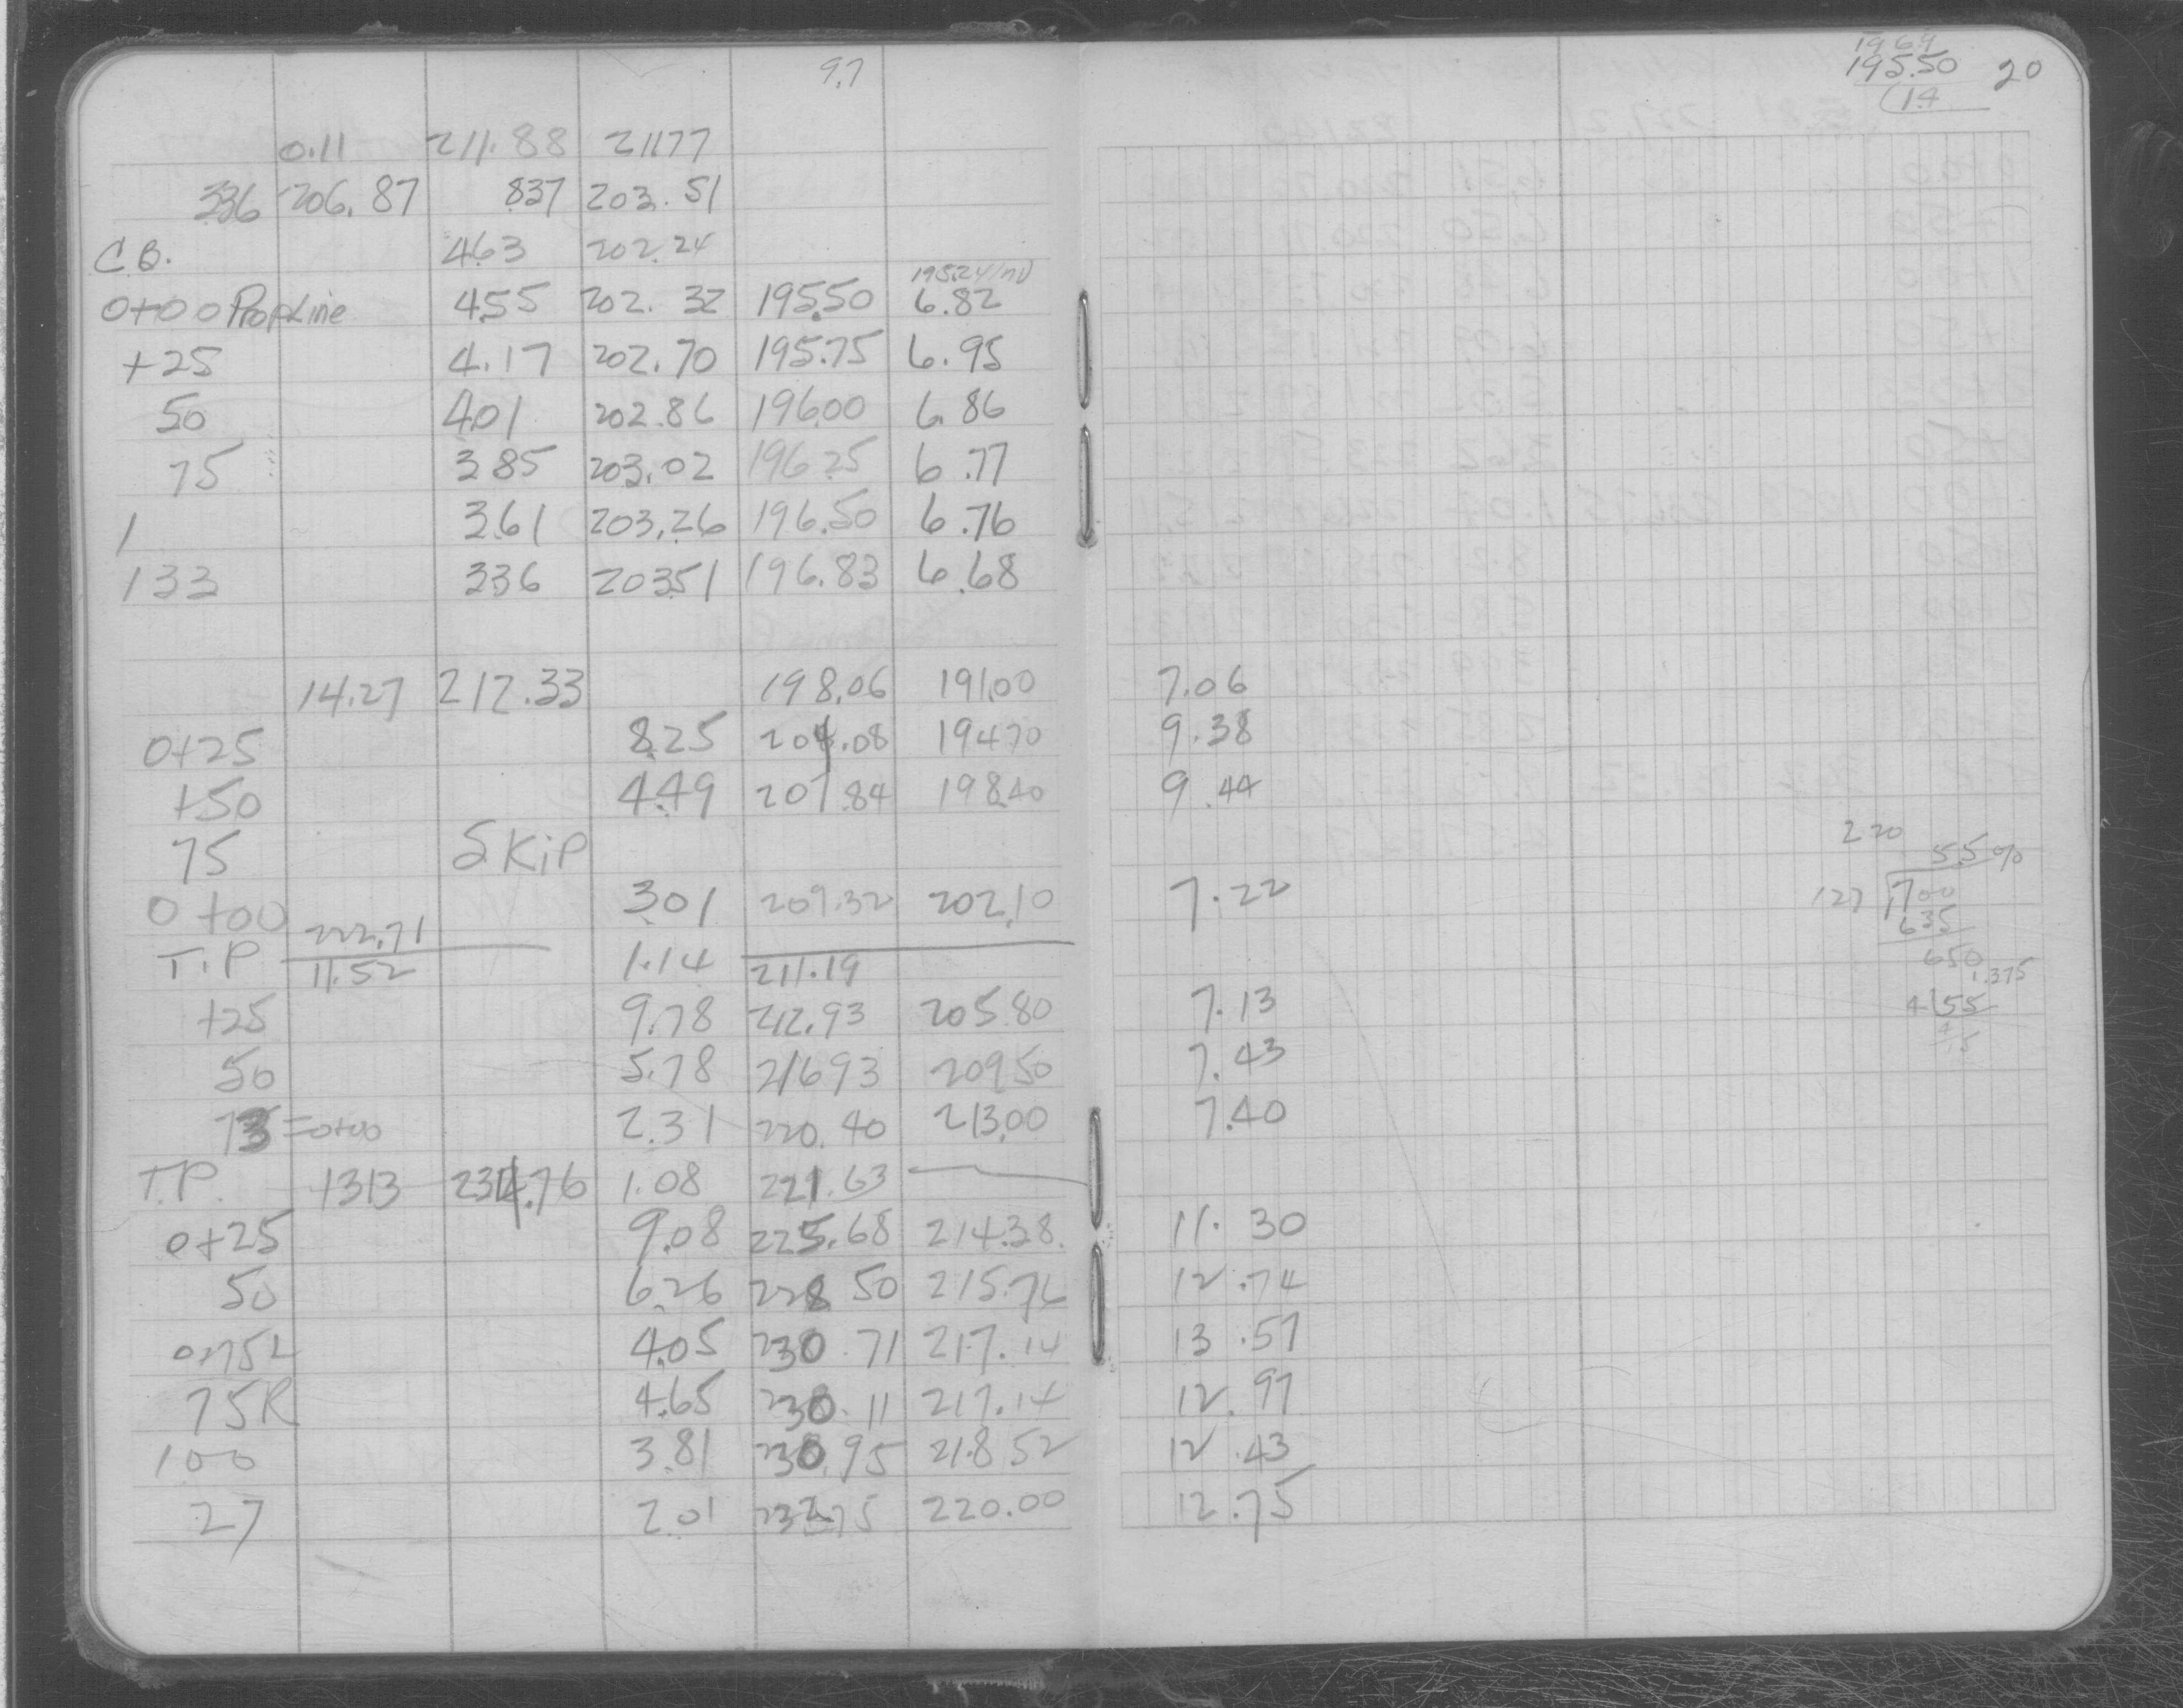 9.7
0.11 211.88 211.77
3.36 206.87 8.37 203.51
C.B. 4.63 202.24
195.24 inv
0+00 Prop Line 4.55 202.32 195.50 6.82
+25 4.17 202.70 195.75 6.95
50 4.01 202.86 196.00 6.86
75 3.85 203.02 196.25 6.77
1 3.61 203.26 196.50 6.76
133 3.36 203.51 196.83 6.68
14.27 212.33 198.06 191.00 7.06
0+25 8.25 204.08 194.70 9.38
+50 4.49 207.84 198.40 9.44
75 SKiP
0+00 3.01 209.32 202.10 7.22
222.71
T.P 11.52 1.14 211.19
+25 9.78 212.93 205.80 7.13
50 5.78 216.93 209.50 7.43
73=0+00 2.31 220.40 213.00 7.40
T.P. 13.13 234.76 1.08 221.63
0+25 9.08 225.68 214.38 11.30
50 6.26 228.50 215.76 12.74
0+75L 4.05 230.71 217.14 13.57
75R 4.65 230.11 217.14 12.97
100 3.81 230.95 218.52 12.43
27 2.01 232.75 220.00 12.75
196.9
195.50 20
1.4
2 20
5.5%
127 700
635
650
1.375
4 55
4
15